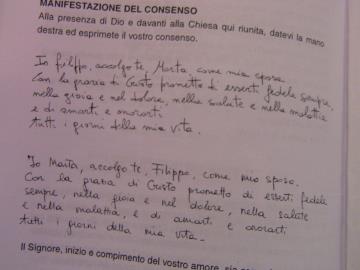 MANIFESTAZIONE DEL CONSENSO
Alla presenza di Dio e davanti alla Chiesa qui riunita, datevi la mano
destra ed esprimete il vostro consenso.
Io Filippo, accolgo te, Marta, come mia sposa.
Con la grazia di Cristo prometto di esserti fedele sempre,
nella gioia e nel dolore, nella salute e nella malattia
e di amarti e onorarti
tutti i giorni della mia vita.
"Io Marta, accolgo te, Filippo, come mio sposo.
Con la grazia di Cristo prometto di esserti fedele
sempre, nella gioia e nel dolore, nella salute
e nella malattia, e di amarti e onorarti
tutti i giorni della mia vita.
Il Signore, inizio e compimento del vostro amore, sia